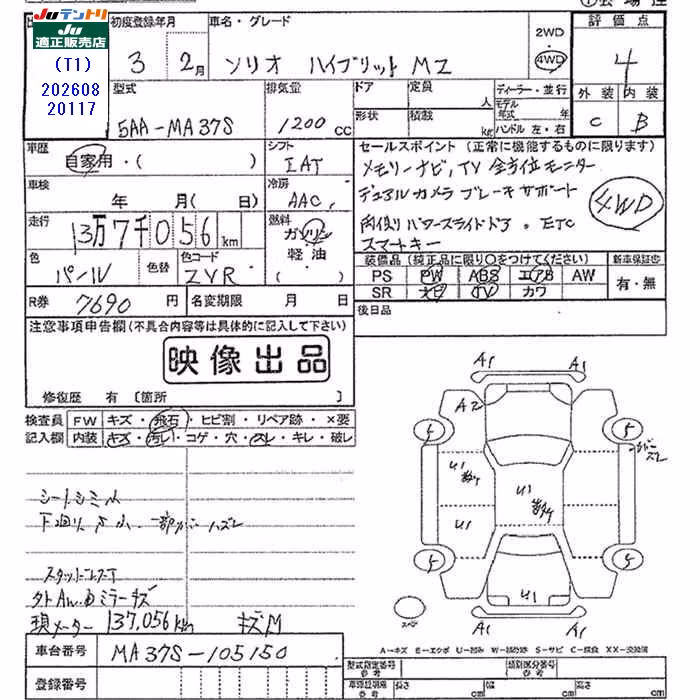 JUテントリ
JU適正販売店
(T1)
202608
20117
初度登録年月
3 2月
車名・グレード
ソリオ ハイブリット MZ
2WD
4WD
評価点
4
外装 内装
C B
型式
5AA-MA37S
排気量
1200cc
ドア
定員
人
形状
積数
kg
ディーラー・並行
モデル年式 年
ハンドル 左・右
車歴
自家用・( )
シフト
IAT
車検
年 月( 日)
冷房
AAC
走行
13万7千056km
燃料
ガソリン
軽油
( )
色
パール
色替
色コード
ZVR
R券
7690円
名変期限 月 日
セールスポイント(正常に機能するものに限ります)
メモリーナビ,TV 全方位モニター
デュアルカメラブレーキサポート
両側パワースライドドア. ETC
スマートキー
4WD
装備品(純正品に限り○をつけてください)
PS PW ABS エアB AW
SR ナビ TV カワ
新車保証書
有・無
後日品
注意事項申告欄(不具合内容等は具体的に記入して下さい)
映像出品
修復歴 有〔箇所 〕
検査員記入欄
FW キズ・飛石・ヒビ割・リペア跡・×要
内装 キズ・汚レ・コゲ・穴・スレ・キレ・破レ
シートシミ小
下廻りサ小、一部カバーハズレ
外AW.ミラーキズ
現メーター 137,056km キズM
車台番号 MA37S-105150
登録番号
A1 A1
A2
5 5
U1
U1
U1
5 5
U1
A1 A1
スペア
A-キズ E-エクボ U-凹み W-補修跡 S-サビ C-腐食 XX-交換済
型式指定番号
類別区分番号
長さ cm
幅 cm
高さ cm